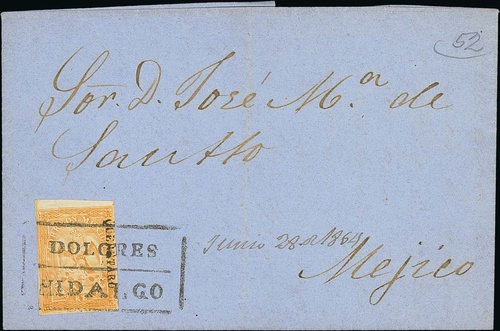 52
Sor. D. José M.a de
Santto
QUERETARO
DOLORES
HIDALGO
Junio 28 de 1864
Mejico